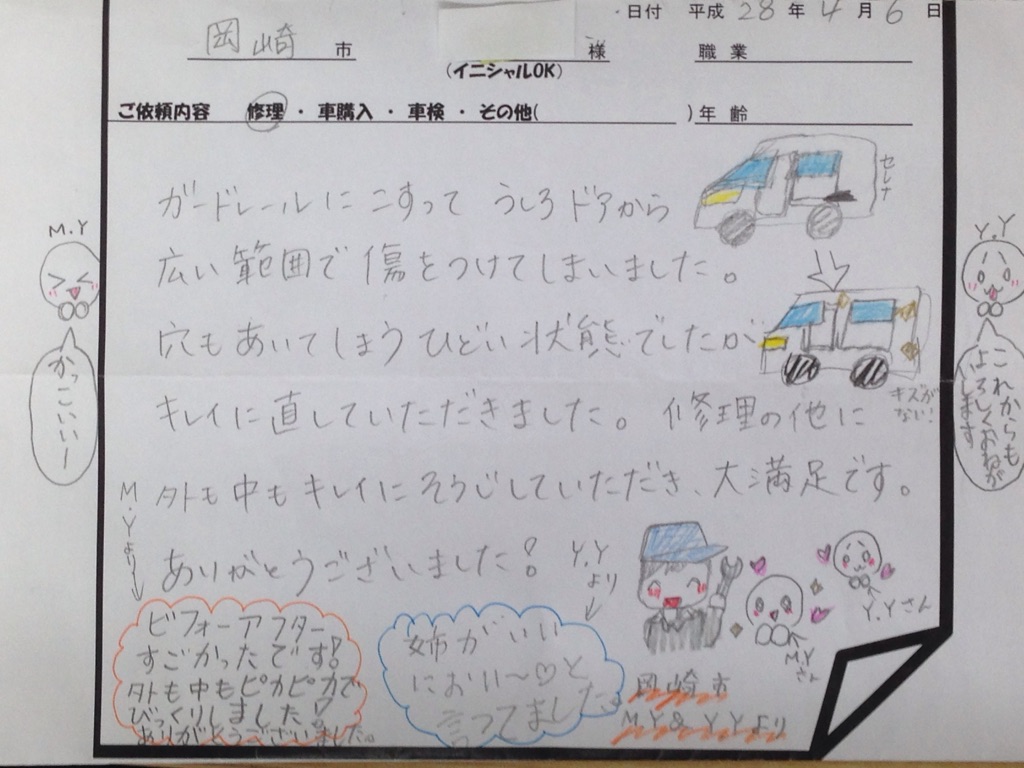 日付 平成 28 年 4 月 6 日
岡崎 市 様 職業
(イニシャルOK)
ご依頼内容 修理 ・ 車購入 ・ 車検 ・ その他( ) 年齢
ガードレールに こすって うしろドアから
広い範囲で傷をつけてしまいました。
穴もあいてしまうひどい状態でしたが
キレイに直していただきました。修理の他に
外も中もキレイにそうじしていただき、大満足です。
ありがとうございました!
セレナ
キズが
ない!
M.Y
かっこいいー
Y.Y
これからも
よろしくおねが
します
M.Yより
ビフォーアフター
すごかったです!
外も中もピカピカで
びっくりしました!
ありがとうございました。
Y.Y
より
姉がいい
におい〜♡と
言ってました。
Y.Yさん
M.Y
さん
岡崎市
M.Y& Y.Yより